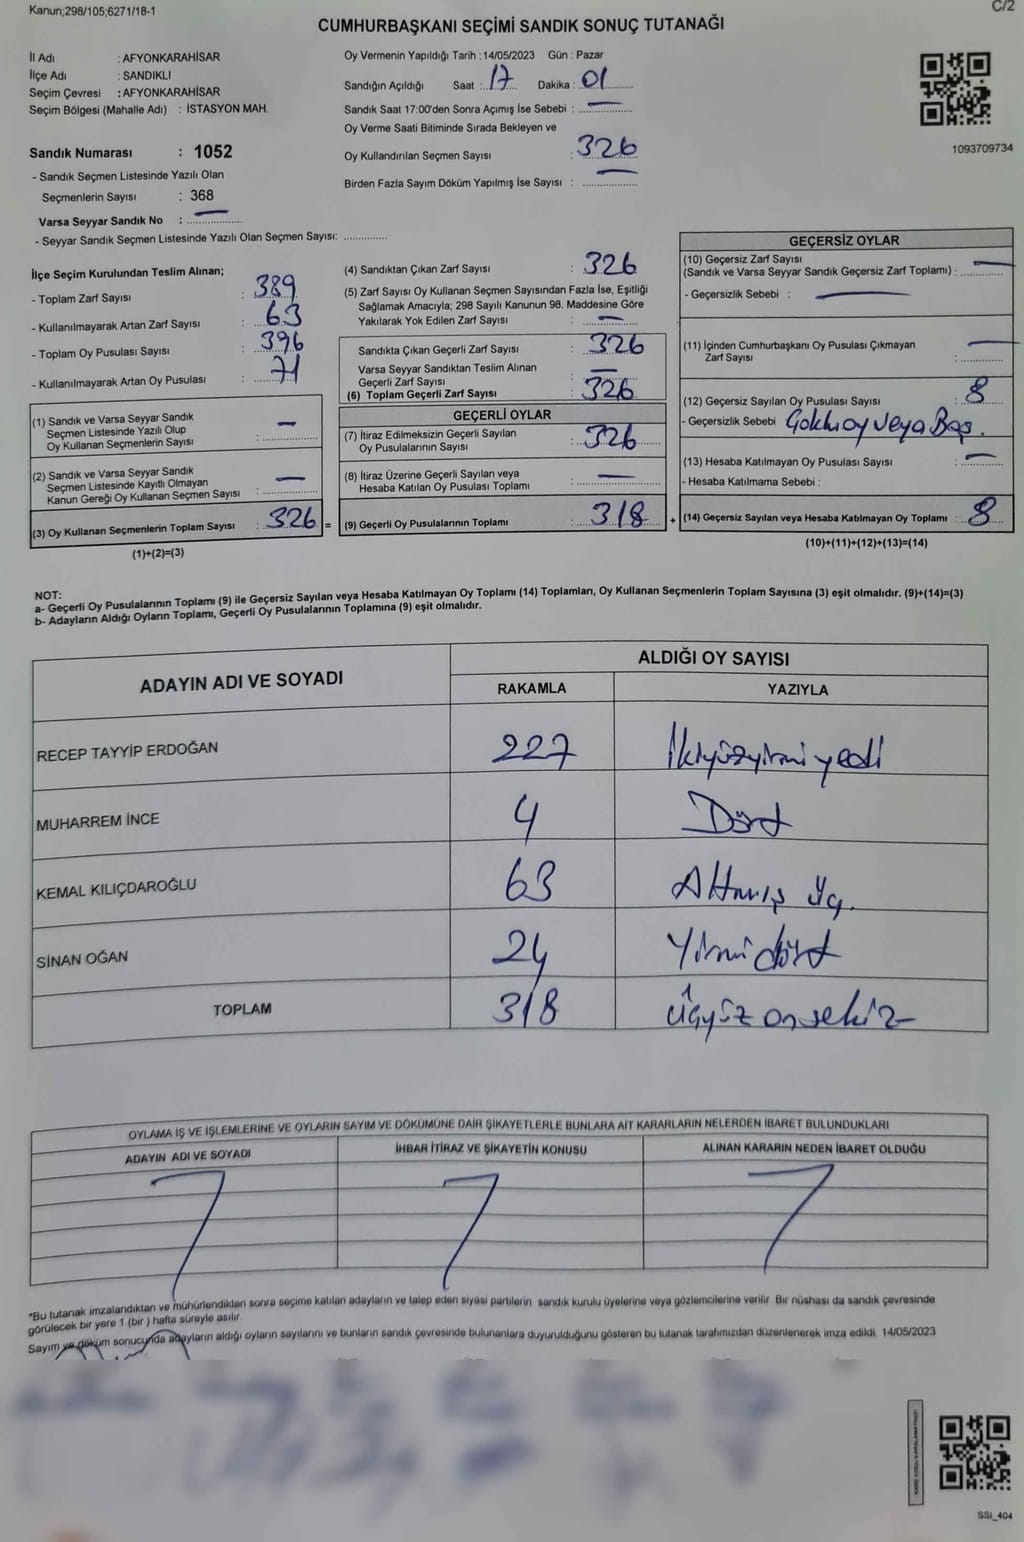 Kanun;298/105;6271/18-1
C/2
CUMHURBAŞKANI SEÇİMİ SANDIK SONUÇ TUTANAĞI
İl Adı : AFYONKARAHİSAR
İlçe Adı : SANDIKLI
Seçim Çevresi : AFYONKARAHİSAR
Seçim Bölgesi (Mahalle Adı) : İSTASYON MAH.
Sandık Numarası : 1052
- Sandık Seçmen Listesinde Yazılı Olan
Seçmenlerin Sayısı : 368
Varsa Seyyar Sandık No : —
- Seyyar Sandık Seçmen Listesinde Yazılı Olan Seçmen Sayısı: ............
Oy Vermenin Yapıldığı Tarih : 14/05/2023 Gün : Pazar
Sandığın Açıldığı Saat : 17 Dakika : 01
Sandık Saat 17:00'den Sonra Açımış İse Sebebi : —
Oy Verme Saati Bitiminde Sırada Bekleyen ve
Oy Kullandırılan Seçmen Sayısı : 326
Birden Fazla Sayım Döküm Yapılmış İse Sayısı : —
1093709734
İlçe Seçim Kurulundan Teslim Alınan;
- Toplam Zarf Sayısı : 389
- Kullanılmayarak Artan Zarf Sayısı : 63
- Toplam Oy Pusulası Sayısı : 396
- Kullanılmayarak Artan Oy Pusulası : 71
(1) Sandık ve Varsa Seyyar Sandık
Seçmen Listesinde Yazılı Olup
Oy Kullanan Seçmenlerin Sayısı : —
(2) Sandık ve Varsa Seyyar Sandık
Seçmen Listesinde Kayıtlı Olmayan
Kanun Gereği Oy Kullanan Seçmen Sayısı : —
(3) Oy Kullanan Seçmenlerin Toplam Sayısı : 326 =
(1)+(2)=(3)
(4) Sandıktan Çıkan Zarf Sayısı : 326
(5) Zarf Sayısı Oy Kullanan Seçmen Sayısından Fazla İse, Eşitliği
Sağlamak Amacıyla; 298 Sayılı Kanunun 98. Maddesine Göre
Yakılarak Yok Edilen Zarf Sayısı : —
Sandıkta Çıkan Geçerli Zarf Sayısı : 326
Varsa Seyyar Sandıktan Teslim Alınan
Geçerli Zarf Sayısı : —
(6) Toplam Geçerli Zarf Sayısı : 326
GEÇERLİ OYLAR
(7) İtiraz Edilmeksizin Geçerli Sayılan
Oy Pusulalarının Sayısı : 326
(8) İtiraz Üzerine Geçerli Sayılan veya
Hesaba Katılan Oy Pusulası Toplamı : —
(9) Geçerli Oy Pusulalarının Toplamı : 318 +
GEÇERSİZ OYLAR
(10) Geçersiz Zarf Sayısı
(Sandık ve Varsa Seyyar Sandık Geçersiz Zarf Toplamı) : —
- Geçersizlik Sebebi : —
(11) İçinden Cumhurbaşkanı Oy Pusulası Çıkmayan
Zarf Sayısı : —
(12) Geçersiz Sayılan Oy Pusulası Sayısı : 8
- Geçersizlik Sebebi : Çoklu oy veya Boş.
(13) Hesaba Katılmayan Oy Pusulası Sayısı : —
- Hesaba Katılmama Sebebi :
(14) Geçersiz Sayılan veya Hesaba Katılmayan Oy Toplamı : 8
(10)+(11)+(12)+(13)=(14)
NOT:
a- Geçerli Oy Pusulalarının Toplamı (9) ile Geçersiz Sayılan veya Hesaba Katılmayan Oy Toplamı (14) Toplamları, Oy Kullanan Seçmenlerin Toplam Sayısına (3) eşit olmalıdır. (9)+(14)=(3)
b- Adayların Aldığı Oyların Toplamı, Geçerli Oy Pusulalarının Toplamına (9) eşit olmalıdır.
ADAYIN ADI VE SOYADI ALDIĞI OY SAYISI
RAKAMLA YAZIYLA
RECEP TAYYİP ERDOĞAN 227 İkiyüzyirmi yedi
MUHARREM İNCE 4 Dört
KEMAL KILIÇDAROĞLU 63 Altmış üç.
SİNAN OĞAN 24 Yirmi dört
TOPLAM 318 üçyüz onsekiz
OYLAMA İŞ VE İŞLEMLERİNE VE OYLARIN SAYIM VE DÖKÜMÜNE DAİR ŞİKAYETLERLE BUNLARA AİT KARARLARIN NELERDEN İBARET BULUNDUKLARI
ADAYIN ADI VE SOYADI İHBAR İTİRAZ VE ŞİKAYETİN KONUSU ALINAN KARARIN NEDEN İBARET OLDUĞU
*Bu tutanak imzalandıktan ve mühürlendikten sonra seçime katılan adayların ve talep eden siyasi partilerin sandık kurulu üyelerine veya gözlemcilerine verilir. Bir nüshası da sandık çevresinde
görülecek bir yere 1 (bir ) hafta süreyle asılır.
Sayım ve döküm sonucunda adayların aldığı oyların sayılarını ve bunların sandık çevresinde bulunanlara duyurulduğunu gösteren bu tutanak tarafımızdan düzenlenerek imza edildi. 14/05/2023
SSI_404